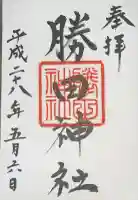 奉拝
勝田神社
平成二十八年五月六日